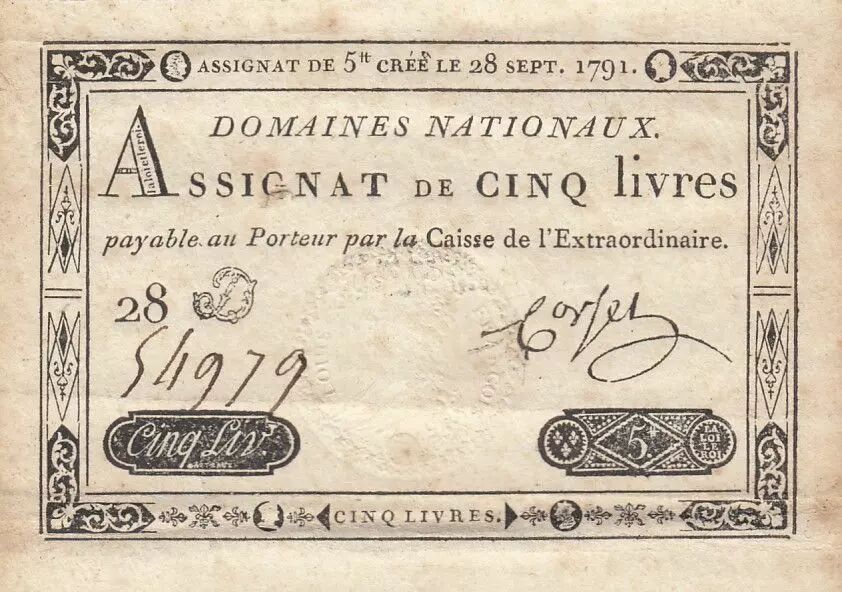 ASSIGNAT DE 5tt CRÉÉ LE 28 SEPT. 1791.
DOMAINES NATIONAUX.
ASSIGNAT DE CINQ livres
la loi et le roi
payable au Porteur par la Caisse de l'Extraordinaire.
28 D
Corsel
54979
Cinq Liv.
GATTEAUX
5tt
LA LOI ET LE ROI
CINQ LIVRES.